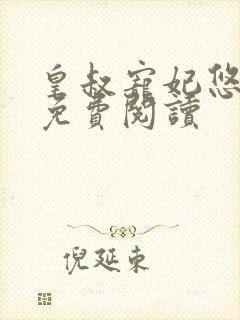 皇叔寵妃悠
免費閱讀
倪延東